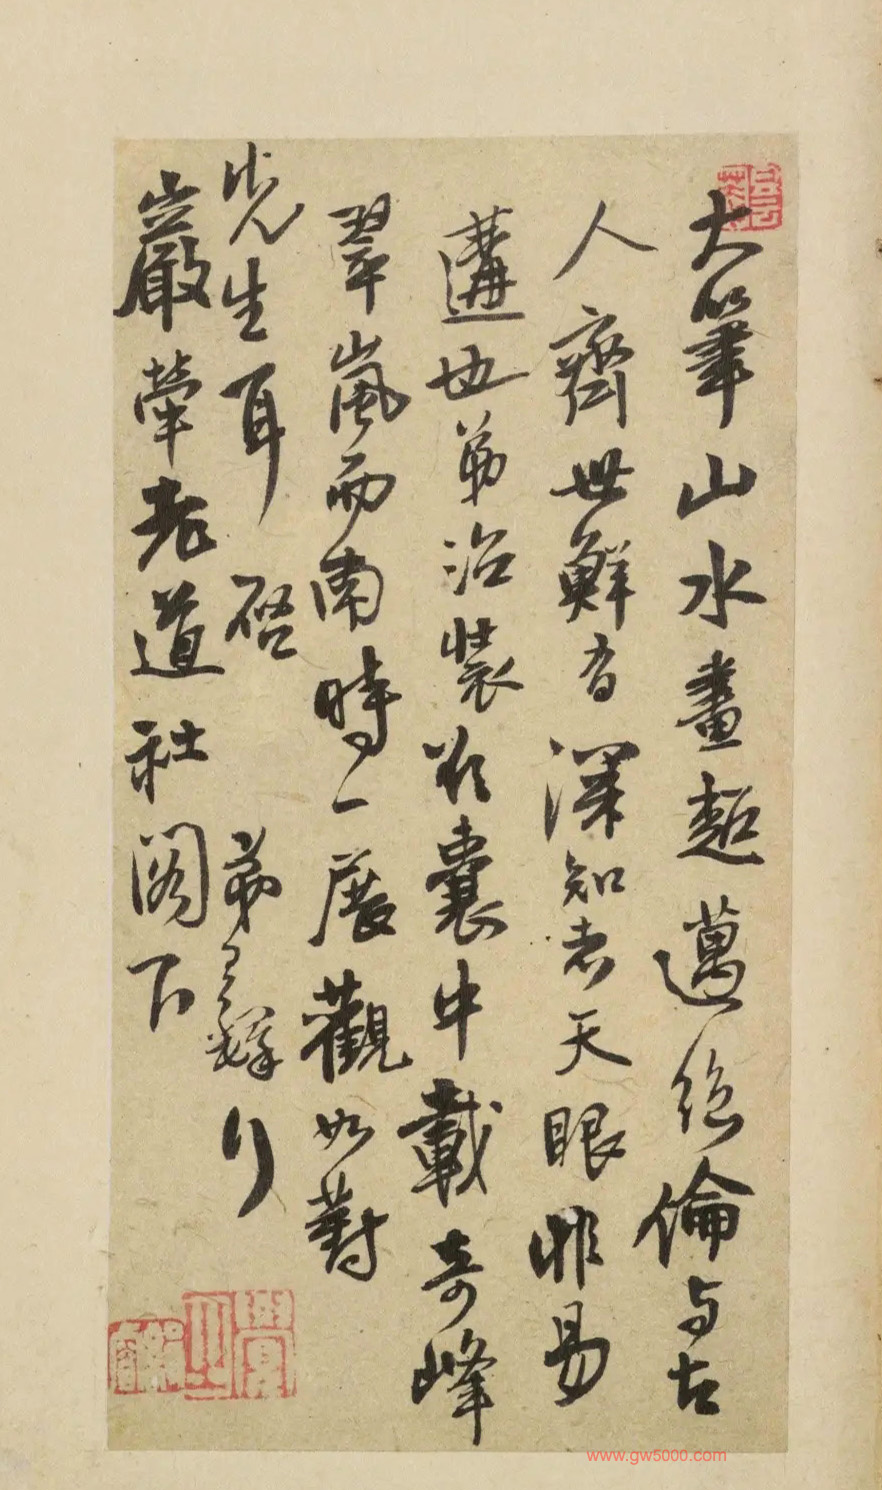 大筆山水畫超邁絕倫與古
人齊世鮮有深知者天眼非易
遘也弟治裝於囊中載奇峰
翠嵐而南時一展觀如對
先生耳 啓 弟 頓
巖犖老道社閣下
www.gw5000.com